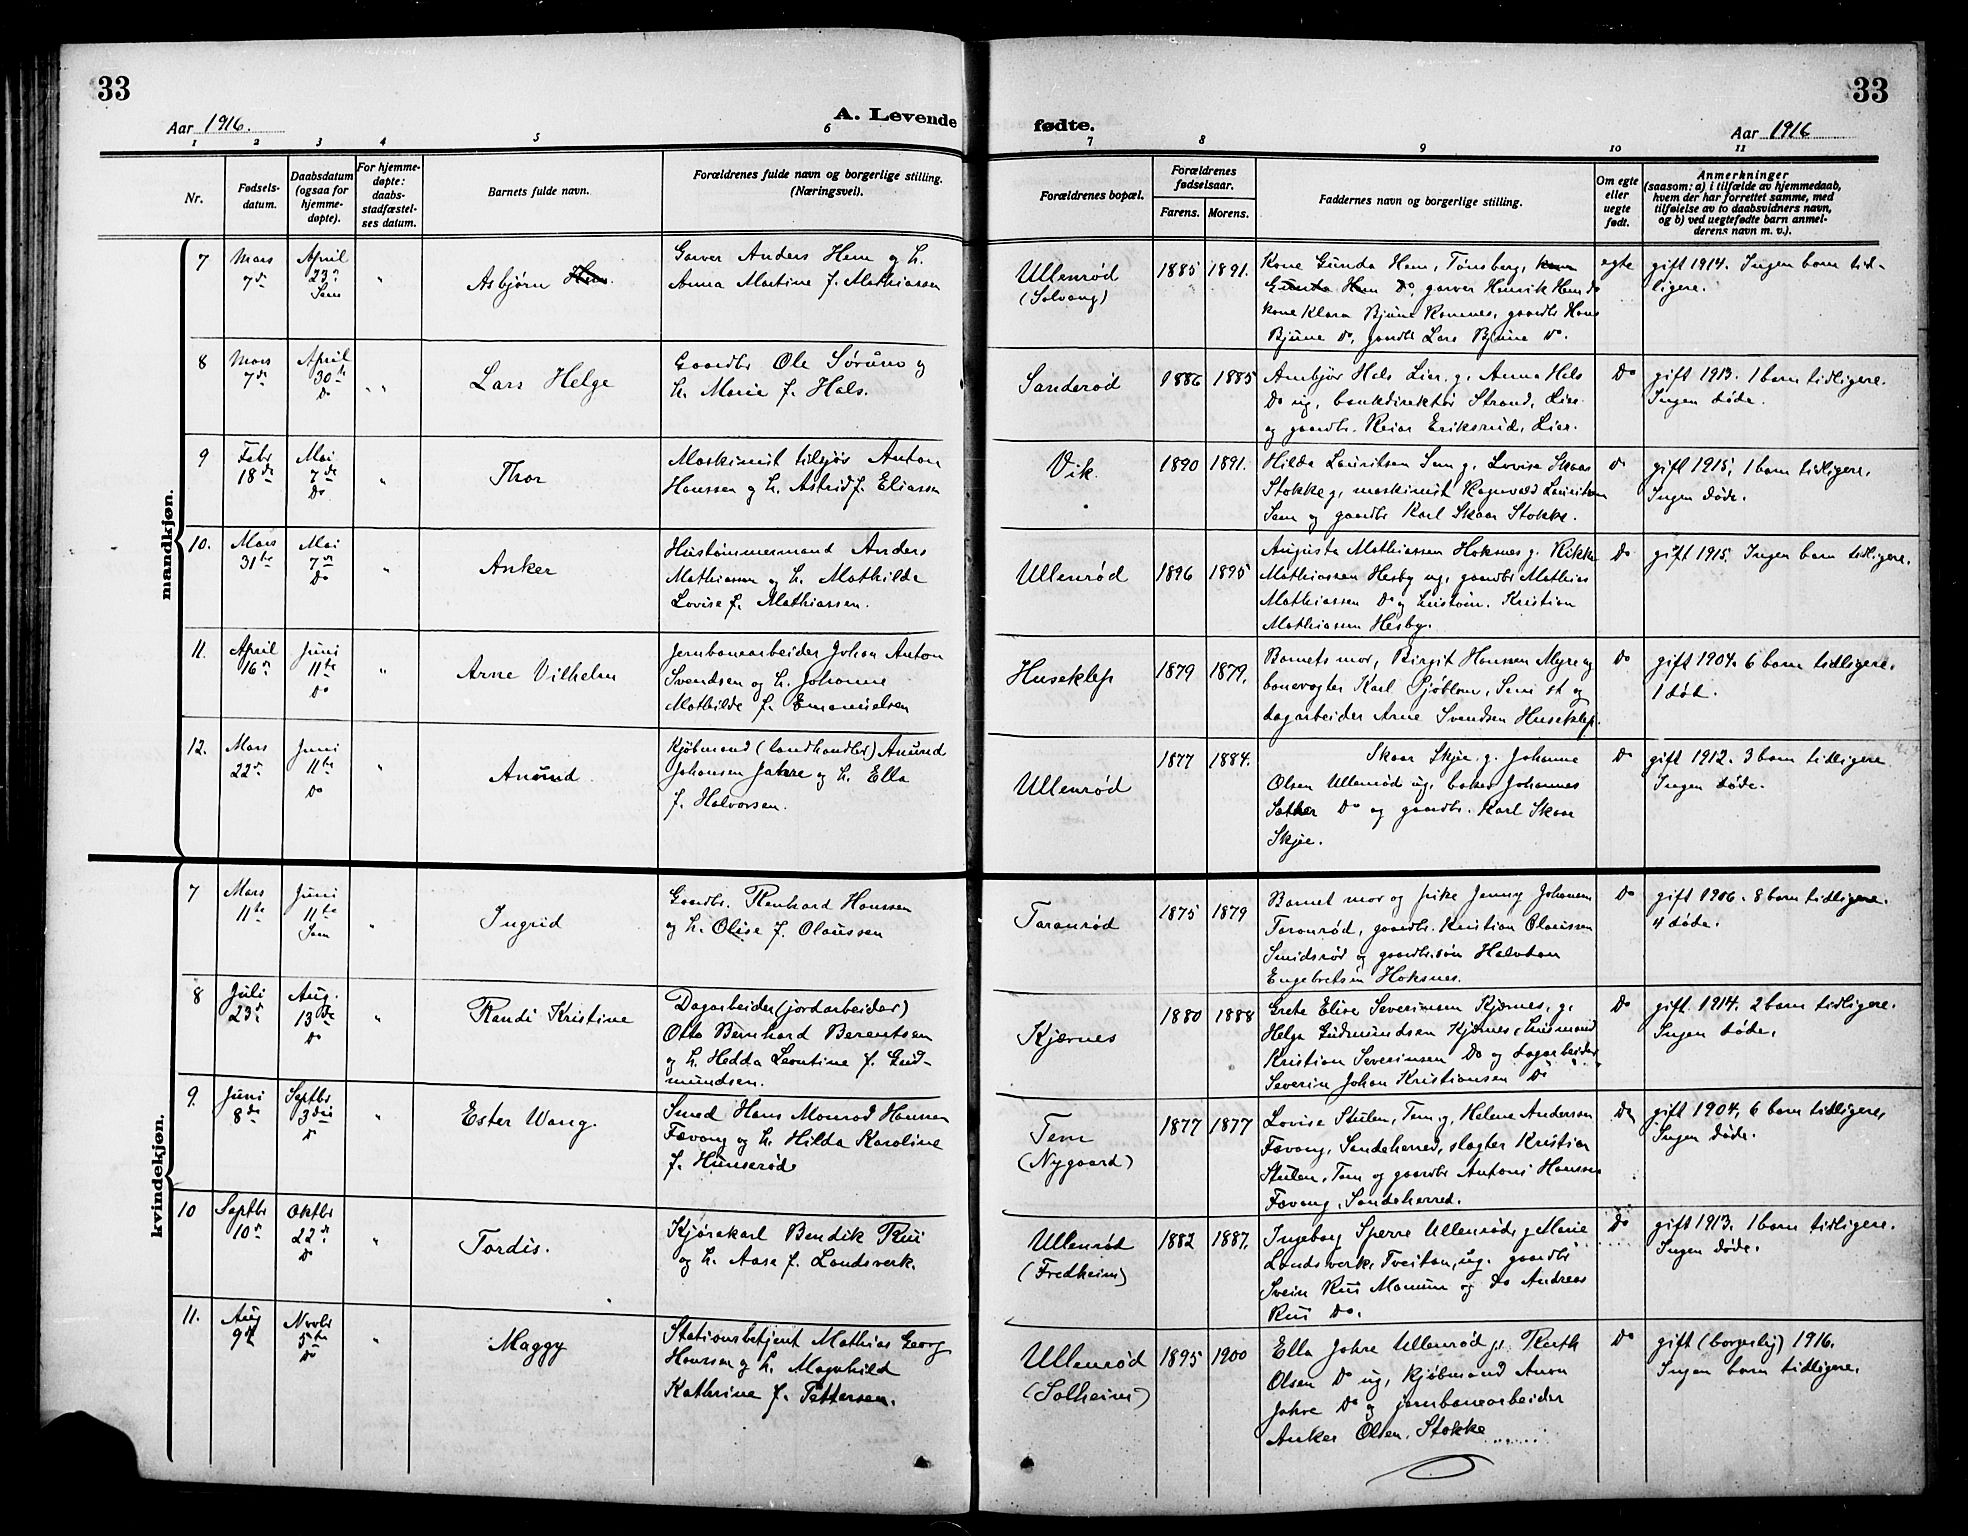 33
33
Aar 1916.
A. Levende
fødte.
Aar 1916
1 2 3 4 5 6 7 8 9 10 11
Nr.
Fødsels-
datum.
Daabsdatum
(ogsaa for
hjemme-
døpte).
For hjemme-
døpte:
daabs-
stadfæstel-
ses datum.
Barnets fulde navn.
Forældrenes fulde navn og borgerlige stilling.
(Næringsvei).
Forældrenes bopæl.
Forældrenes
fødselsaar.
Farens. Morens.
Faddernes navn og borgerlige stilling.
Om egte
eller
uegte
født.
Anmerkninger
(saasom: a) i tilfælde av hjemmedaab,
hvem der har forrettet samme, med
tilføielse av to daabsvidners navn,
og b) ved uegtefødte barn anmel-
derens navn m. v.).
mandkjøn.
7
Mars
7de
April
23de
Sem
"
Asbjørn Hem
Garver Anders Hem og h.
Anna Martine f. Mathiassen
Ullenrød
(Solvang)
1885
1891.
Kone Gunda Hem, Tønsberg, kone
Gunda Hem Do, garver Henrik Hem do
kone Klara Bjune Ramnes, gaardbr Hans
Bjune Do, gaardbr Lars Bjune Do.
egte
gift 1914. Ingen barn tid-
ligere.
8
Mars
7de
April
30te
Do
"
Lars Helge
Gaardbr Ole Sørum og
h. Marie f. Hals.
Sanderød
1886
1885
Ambjør Hals Lier. g. Anna Hals
Do ug, bankdirektør Strand, Lier
og gaardbr. Reiar Eriksrud, Lier.
Do
gift 1913. 1 barn tidligere.
Ingen døde.
9
Febr
18de
Mai
7de
Do
"
Thor
Maskinist tilsjøs Anton
Hanssen og h. Astrid f. Eliassen
Vik.
1890
1891.
Hilda Lauritsen Sem g. Lovise Skaar
Stokke g, maskinist Ragnvald Lauritsen
Sem og gaardbr Karl Skaar Stokke.
Do
gift 1915, 1 barn tidligere.
Ingen døde.
10.
Mars
31te
Mai
7de
Do
"
Anker
Hustømmermand Anders
Mathiassen og h. Mathilde
Lovise f. Mathiassen.
Ullenrød
1896
1895
Augusta Mathiassen Hoksnes g. Rikka
Mathiassen Hesby ug, gaardbr Mathias
Mathiassen Do og hustøm. Kristian
Mathiassen Hesby.
Do
gift 1915. Ingen barn tidligere.
11.
April
16de
Juni
11te
Do
"
Arne Vilhelm
Jernbanearbeider Johan Anton
Svendsen og h. Johanne
Mathilde f. Emanuelsen
Huseklep
1879
1879.
Barnets mor, Birgit Hanssen Myre og
banevogter Karl Sjöblom, Sem st og
dagarbeider Arne Svendsen Huseklep.
Do
gift 1904. 6 barn tidligere.
1 død.
12.
Mars
22de
Juni
11te
Do
"
Anund
Kjøbmand (landhandler) Anund
Johansen Jahre og h. Ella
f. Halvorsen.
Ullenrød
1877
1884.
Skaar Skjee. g. Johanne
Olsen Ullenrød ug, baker Johannes
Sather Do og gaardbr. Karl Skaar
Skjee.
Do
gift 1912. 3 barn tidligere
Ingen døde.
kvindekjøn.
7
Mars
11te
Juni
11te
Sem
"
Ingrid
Gaardbr. Reinhard Hanssen
og h. Olise f. Olaussen
Taranrød
1875
1879
Barnet mor og pike Jenny Johansen
Taranrød, gaardbr. Kristian Olaussen
Smidsrød og gaardbr.søn Halvdan
Engebretsen Hoksnes.
Do
gift 1906. 8 barn tidligere.
4 døde.
8
Juli
23de
Aug.
13de
Do
"
Randi Kristine
Dagarbeider (jordarbeider)
Otto Bernhard Berentsen
og h. Hedda Leontine f. Gud-
mundsen.
Kjærnes
1880
1888
Grete Elise Severinsen Kjærnes, g.
Helga Gudmundsen Kjærnes, husmand
Kristian Severinsen Do og dagarbeider
Severin Johan Kristiansen Do
Do
gift. 1914. 2 barn tidligere.
Ingen døde.
9.
Juni
8de
Septbr
3die
Do
"
Ester Wang.
Smed Hans Monrad Hansen
Fævang og h. Hilda Karoline
f. Hunserød
Tem
(Nygaard)
1877
1877
Lovise Stulen, Tem g, Helene Anderson
Fævang, Sandeherred, slagter Kristian
Stulen, Tem og gaardbr Antoni Hanssen
Fævang, Sandeherred.
Do
gift 1904, 6 barn tidligere,
Ingen døde.
10
Septbr
10de
Oktbr
22de
Do
"
Tordis.
Kjørekarl Bendik Rui
og h. Aase f. Landsverk.
Ullenrød
(Fredheim)
1882
1887.
Ingeborg Sperre Ullenrød, g Marie
Landsverk, Tveitan, ug. gaardbr
Svein Rui Manum og Do Andreas
Rui Do.
Do
gift 1913. 1 barn tidligere.
Ingen døde.
11.
Aug
9de
Novbr
5te
Do
"
Maggy
Stationsbetjent Mathias Georg
Hanssen og h. Magnhild
Kathrine f. Pettersen.
Ullenrød
(Solheim)
1895
1900
Ella Jahre Ullenrød g. Ruth
Olsen Do ug, kjøbmand Anon
Jahre Do og jernbanearbeider
Anker Olsen, Stokke
Do
gift (borgerlig) 1916.
Ingen barn tidligere.